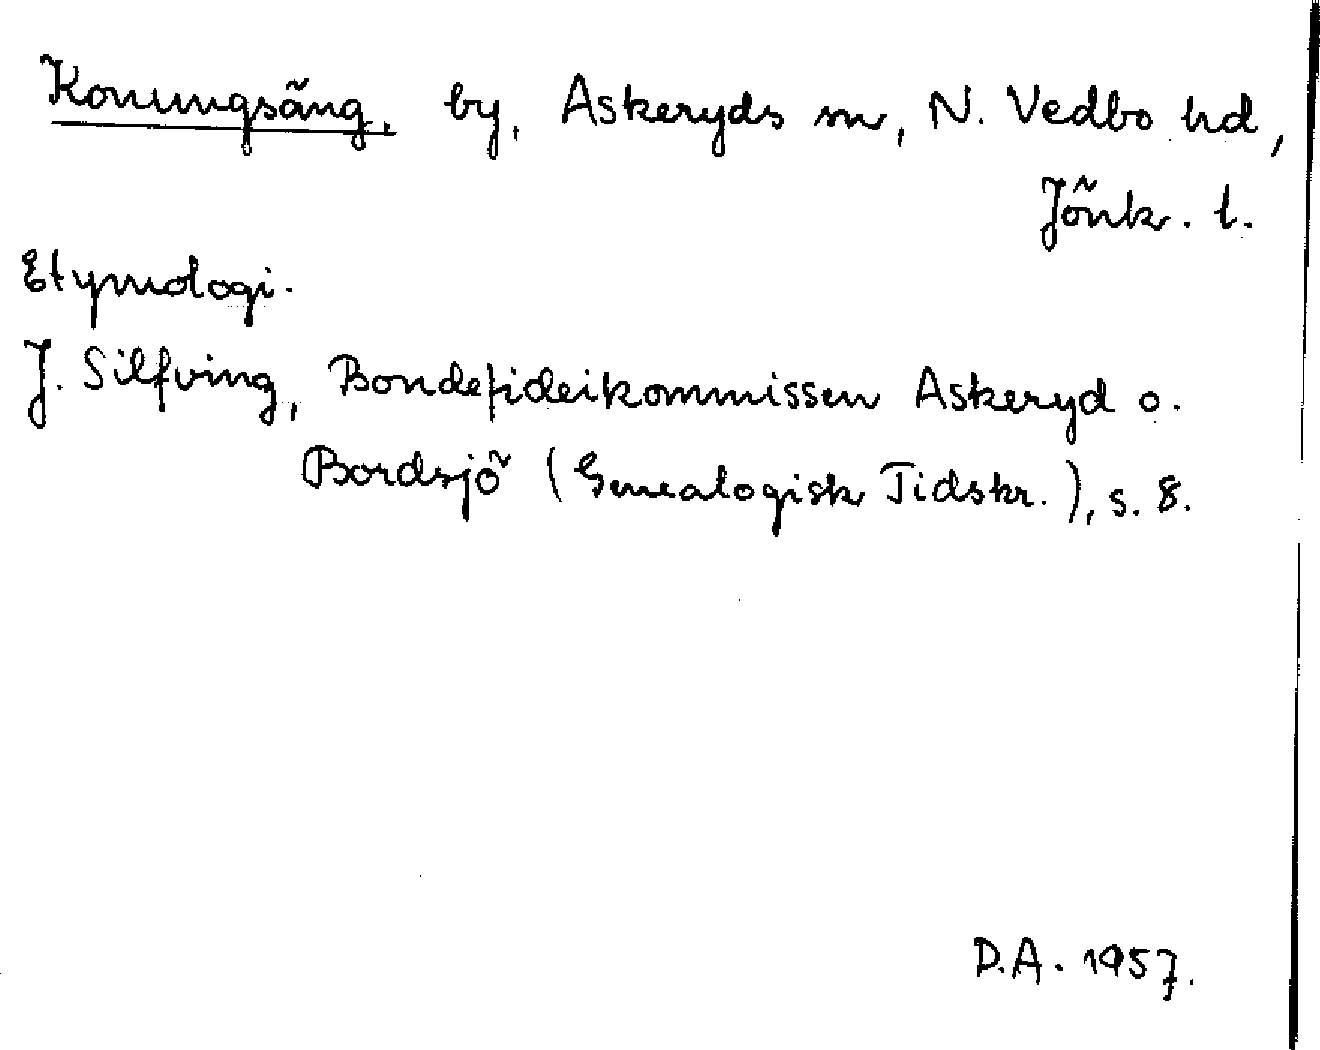 Konungsäng, by, Askeryds sn, N. Vedbo hd,
Jönk. l.
Etymologi.
J. Silfving, Bondefideikommissen Askeryd o.
Bordsjö (Genealogisk Tidskr.), s. 8.
D.A. 1957.